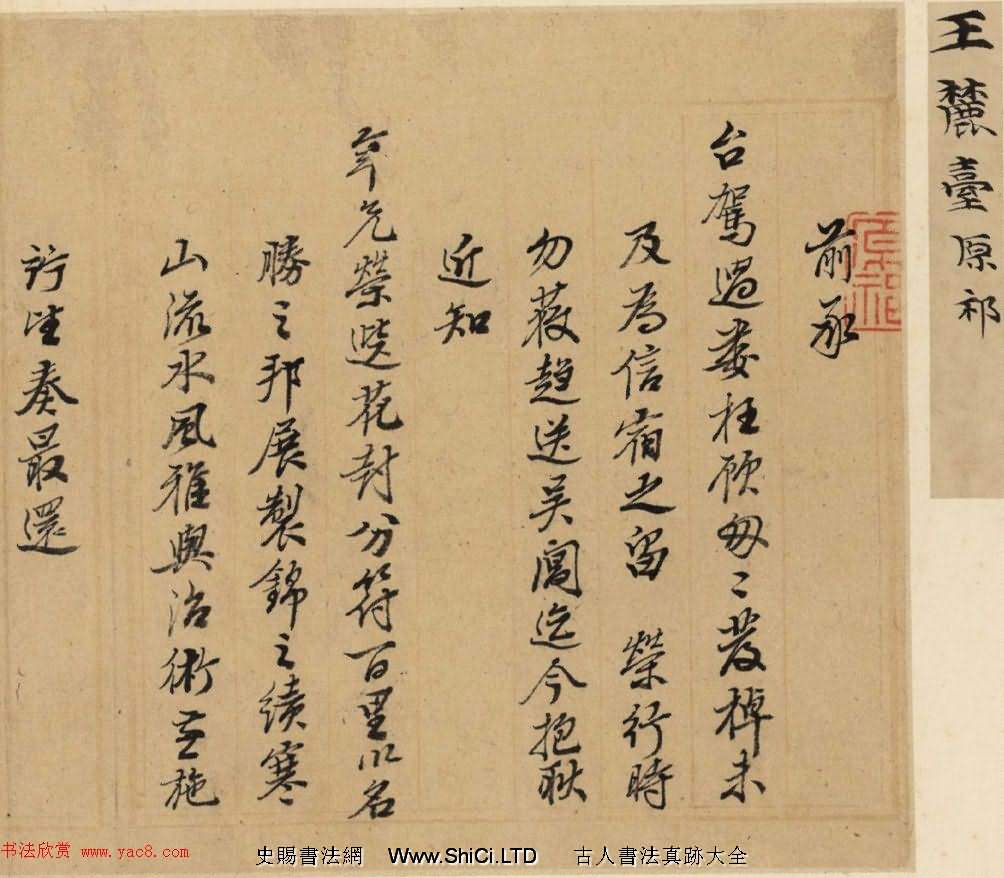 王麓臺原祁
前承
台駕過婁枉顧匆〻發棹未
及為信宿之留 榮行時
勿獲趨送吴閶迄今抱歉
近知
年兄榮蒞花封分符百里以名
勝之邦展製錦之績寒
山流水風雅與治術並施
佇望奏最還
书法欣赏 www.yac8.com
史賜書法網 Www.ShiCi.LTD 古人書法真跡大全